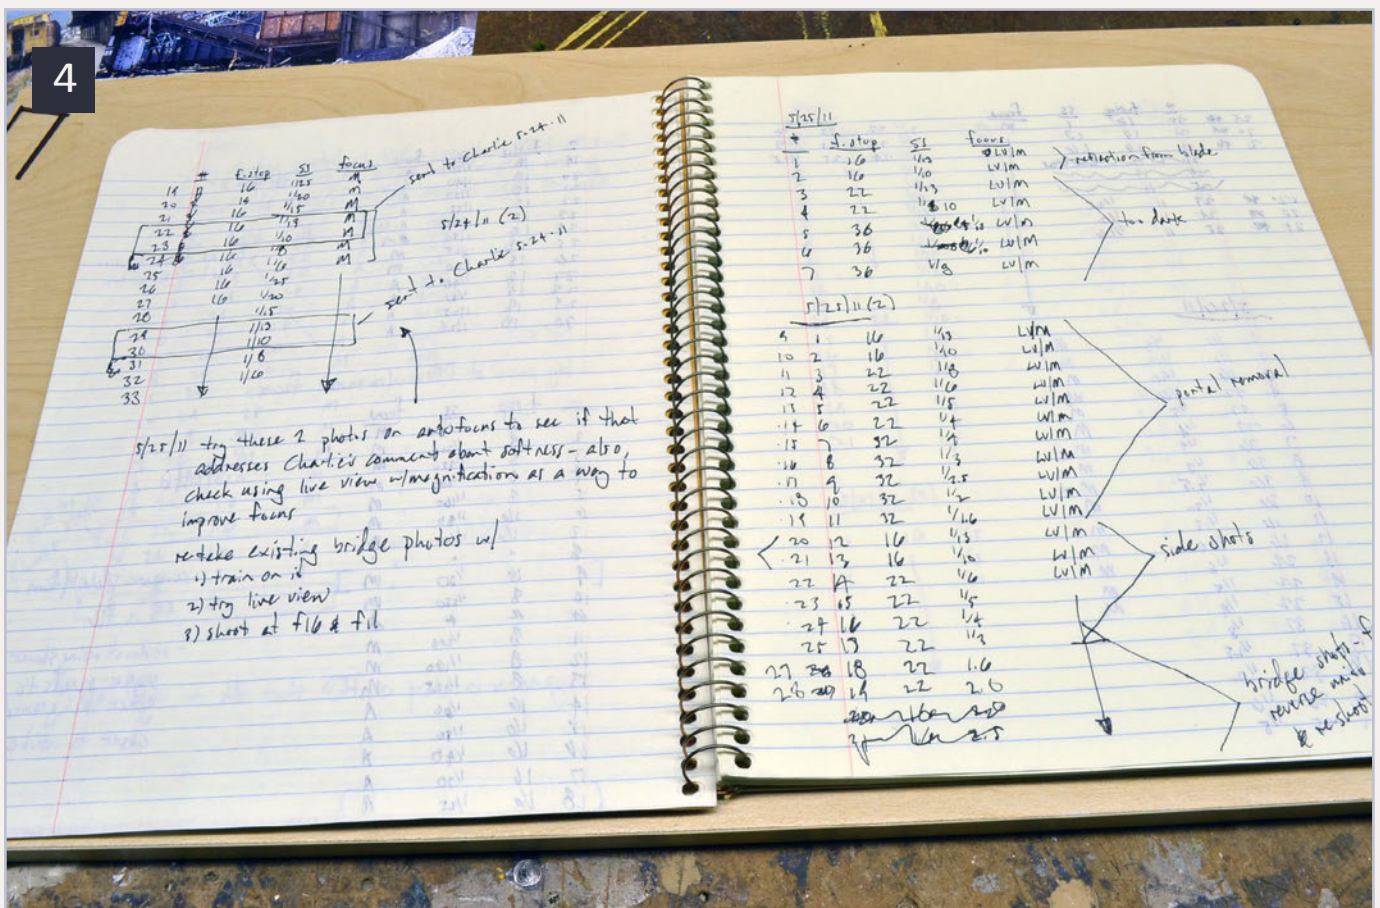 4
# f-stop SS focus
19 16 1/25 M
20 16 1/20 M
21 16 1/15 M
22 16 1/13 M
23 16 1/10 M
24 16 1/8 M
25 16 1/6
26 16 1/25
27 16 1/20
28 1/15
29 1/13
30 1/10
31 1/8
32 1/6
33
sent to Charlie 5-24-11
5/24/11 (2)
sent to Charlie 5-24-11
5/25/11 try these 2 photos on autofocus to see if that
addresses Charlie's comment about softness - also,
check using live view w/magnification as a way to
improve focus
re-take existing bridge photos w/
1) train on it
2) try live view
3) shoot at f16 & f11
5/25/11
# f-stop SS focus
1 16 1/13 LV/M
2 16 1/10 LV/M
3 22 1/13 LV/M
4 22 10 LV/M
5 36 LV/M
6 36 LV/M
7 36 1/8 LV/M
reflection from blade
too dark
5/25/11 (2)
9 1 16 1/13 LV/M
10 2 16 1/10 LV/M
11 3 22 1/8 LV/M
12 4 22 1/6 LV/M
13 5 22 1/5 LV/M
14 6 22 1/4 LV/M
15 7 32 1/4 LV/M
16 8 32 1/3 LV/M
17 9 32 1/2.5 LV/M
18 10 32 1/2 LV/M
19 11 32 1/1.6 LV/M
20 12 16 1/13 LV/M
21 13 16 1/10 LV/M
22 14 22 1/6 LV/M
23 15 22 1/5
24 16 22 1/4
25 17 22 1/3
27 18 22 1.6
28 19 22 2.0
portal removal
side shots
bridge shots -
reverse
& re-shoot